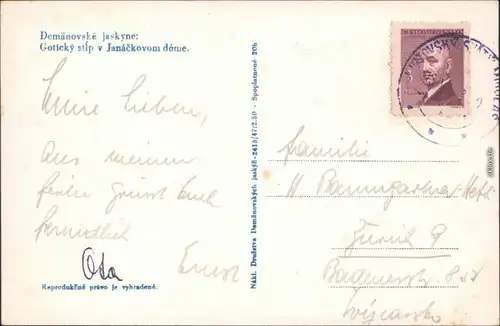 Demänovské jaskyne:
Gotický stĺp v Janáčkovom dóme.
Meine Lieben,
Aus meinen
Ferien grüsst Euch
freundlich
Ota Ernst
Reprodukčné právo je vyhradené.
Nákl. Družstva Demänovských jaskýň-2413/47/2.50 - Spoplatnené 20h
ČESKOSLOVENSKO
Familie
H Baumgartner-
Zürich 9
Švýcarsko